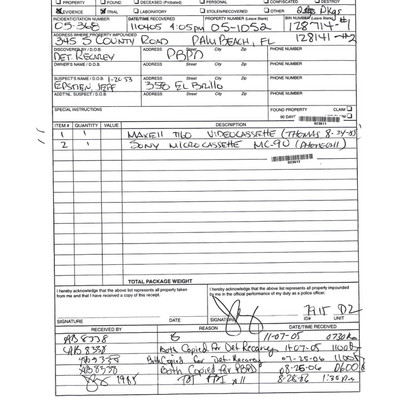 PROPERTY FOUND DECEASED (Probated) PERSONAL CONFISCATED DESTROY
EVIDENCE TRIAL LABORATORY STOLEN/RECOVERED OTHER
INCIDENT/CITATION NUMBER DATE/TIME RECOVERED PROPERTY NUMBER (Leave Blank) BIN NUMBER (Leave Blank)
05-368 110405 4:05pm 05-1052 128714-#1
ADDRESS WHERE PROPERTY IMPOUNDED
345 S COUNTY ROAD PALM BEACH, FL 128141-#2
DISCOVERED BY / D.O.B. ADDRESS Street City Zip PHONE NUMBER
DET. RECAREY PBPD
OWNER'S NAME / D.O.B. ADDRESS Street City Zip PHONE NUMBER
SUSPECT'S NAME / D.O.B. 1-20-53 ADDRESS Street City Zip PHONE NUMBER
EPSTIEN, JEFF 358 El Brillo
ADDT'NL SUSPECT / D.O.B. ADDRESS Street City Zip PHONE NUMBER
SPECIAL INSTRUCTIONS FOUND PROPERTY CLAIM
90 DAY
ITEM # QUANTITY VALUE DESCRIPTION
1 1 MAXELL T160 VIDEOCASSETTE (THOMAS
2 1 SONY MICROCASSETTE MC-90
TOTAL PACKAGE WEIGHT
I hereby acknowledge that the above list represents all property taken from me and that I have received a copy of this receipt.
I hereby acknowledge that the above list represents all property impounded by me in the official performance of my duty as a police officer.
SIGNATURE DATE SIGNATURE ID# UNIT
RECEIVED BY REASON DATE/TIME RECEIVED
11-07-05
Both Copied for Det Recarey 11-07-05
Both Copied for Det. Recarey 07-25-06
Both Copied for PBPD 08-25-06 0600
1985 8-28-06